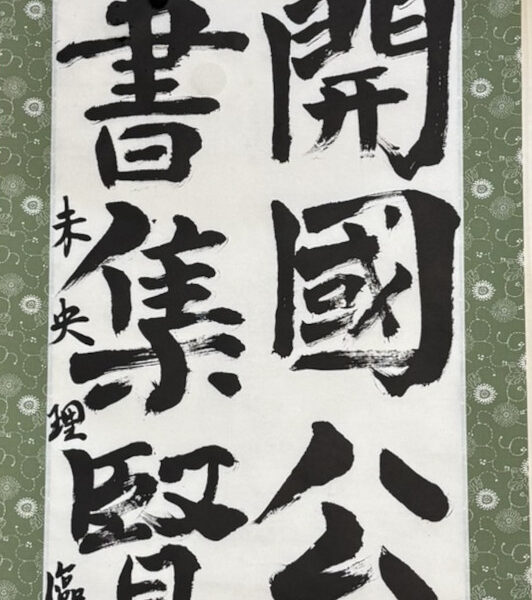 開國公
書集賢
未央理臨